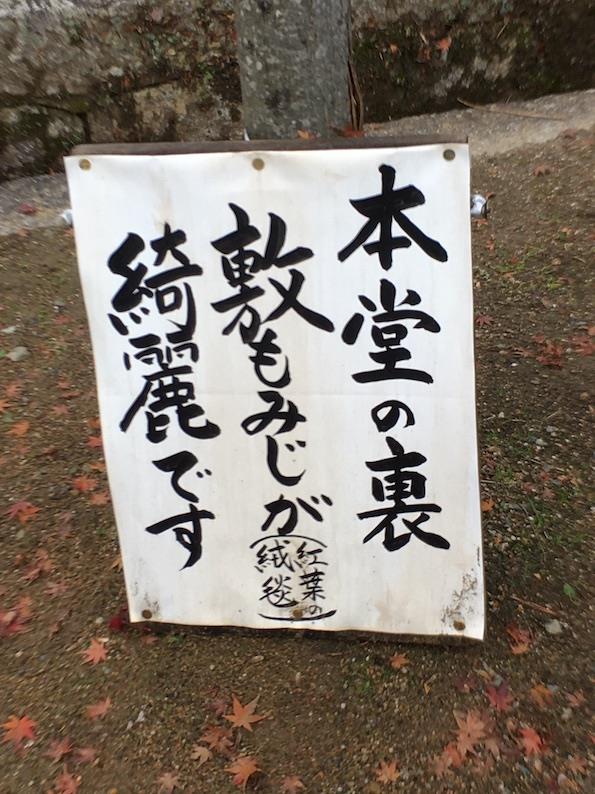 本堂の裏
敷もみじが
紅葉の
絨毯
綺麗です